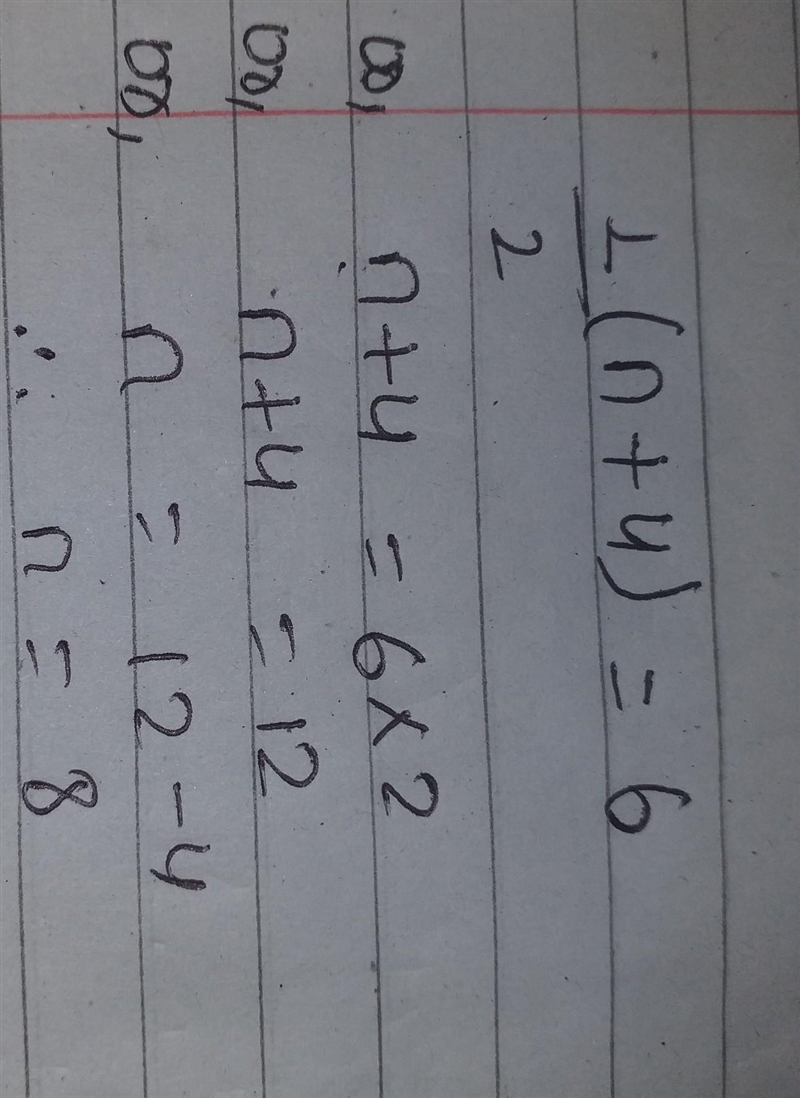 1/2 (n+4) = 6
or, n+4 = 6×2
or, n+4 = 12
or, n = 12-4
∴ n = 8